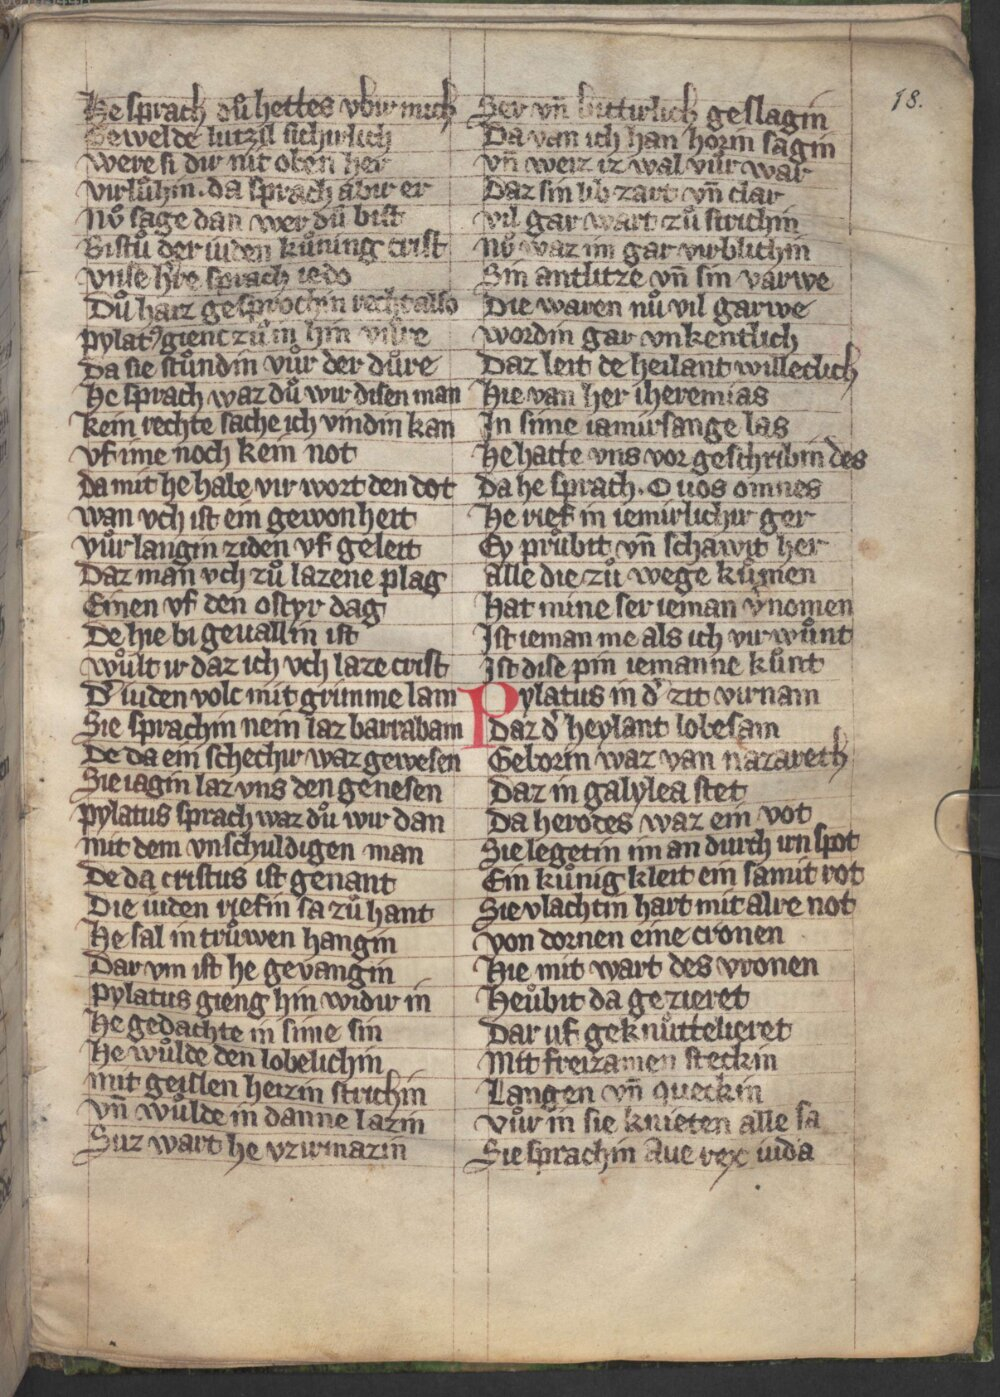 18.
He sprach dů hettes vbir mich
Gewelde lutzil sichirlich
were si dir nit oben her
virlůhin. da sprach abir er
Nů sage dan wer dů bist
Bistu der iuden kůning crist
vnse h're sprach iedo
Dů haiz gesprochin recht also
pylat9 gienc zů in hin vůre
Da sie stůndin vůr der důre
He sprach waz dů wir disen man
kein rechte sache ich vindin kan
vf ime noch kein not
Da mit he habe vir wort den dot
wan vch ist ein gewonheit
vůr langin ziden vf geleit
Daz man vch zů lazene plag
Einen vf den ostyr dag
De hie bi geuallin ist
wůlt ir daz ich vch laze crist
D' iuden volc mit grimme lam
Sie sprachin nein laz barrabam
De da ein schechir waz gewesen
Sie iagin laz vns den genesen
pylatus sprach waz dů wir dan
mit dem vnschuldigen man
De da cristus ist genant
Die iuden riefin sa zů hant
He sal in trůwen hangin
Dar vm ist he gevangin
pylatus gieng hin widir in
He gedachte in sime sin
He wůlde den lobelichin
mit geislen heizin strichin
vn̄ wůlde in danne lazin
Suz wart he vzirmazin
Ser vn̄ bittirlich geslagin
Da van ich han horin sagin
vn̄ weiz iz wal vůr war
Daz sin lib zart vn̄ clar
vil gar wart zů strichin
Nů waz im gar virblichin
Sin antlitze vn̄ sin varwe
Die waren nů vil garwe
wordin gar vnkentlich
Daz leit de heilant willeclich
Hie van her iheremias
In sime iamirsange las
He hatte vns vor geschribin des
Da he sprach. O uos omnes
He rief in iemirlichir ger
Ey průbit vn̄ schawit her
alle die zů wege kůmen
Hat mine ser ieman v'nomen
Ist ieman me als ich vir wůnt
Ist dise pin iemanne kůnt
Pylatus in d' zit virnam
Daz d' heylant lobesam
Geborin waz van nazareth
Daz in galylea stet
Da herodes waz ein vot
Sie legetin im an durch irn spot
Ein kůnig kleit ein samit rot
Sie vlachtin hart mit alre not
von dornen eine cronen
Hie mit wart des vronen
Heůbit da gezieret
Dar uf geknůttelieret
Mit freizamen steckin
Langen vn̄ queckin
vůr in sie knieten alle sa
Sie sprachin Aue rex iuda